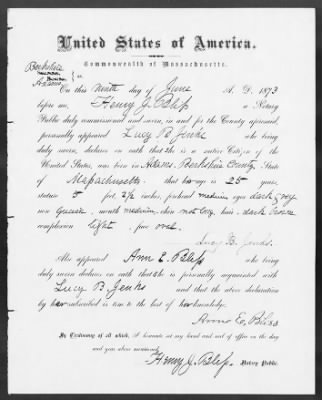 United States of America.
Commonwealth of Massachusetts.
Berkshire
Adams } ss
On this Ninth day of June A. D. 1873
before me, Henry J. Bliss a Notary
Public duly commissioned and sworn, in and for the County aforesaid,
personally appeared Lucy B. Jenks who being
duly sworn, declares on oath that she is a native Citizen of the
United States, was born in Adams, Berkshire County, State
of Massachusetts that her age is 25 years,
stature 5 feet, 2 1/2 inches, forehead medium eyes dark grey
nose mouth medium, chin hair, dark brown
complexion light, face oval.
Lucy B. Jenks.
Also appeared Ann E. Bliss who being
duly sworn declares on oath that she is personally acquainted with
Lucy B. Jenks and that the above declaration
by her subscribed is true to the best of her knowledge.
Ann E. Bliss
In Testimony of all which, I hereunto set my hand and seal of office on the day
and year above mentioned.
Henry J. Bliss, Notary Public.